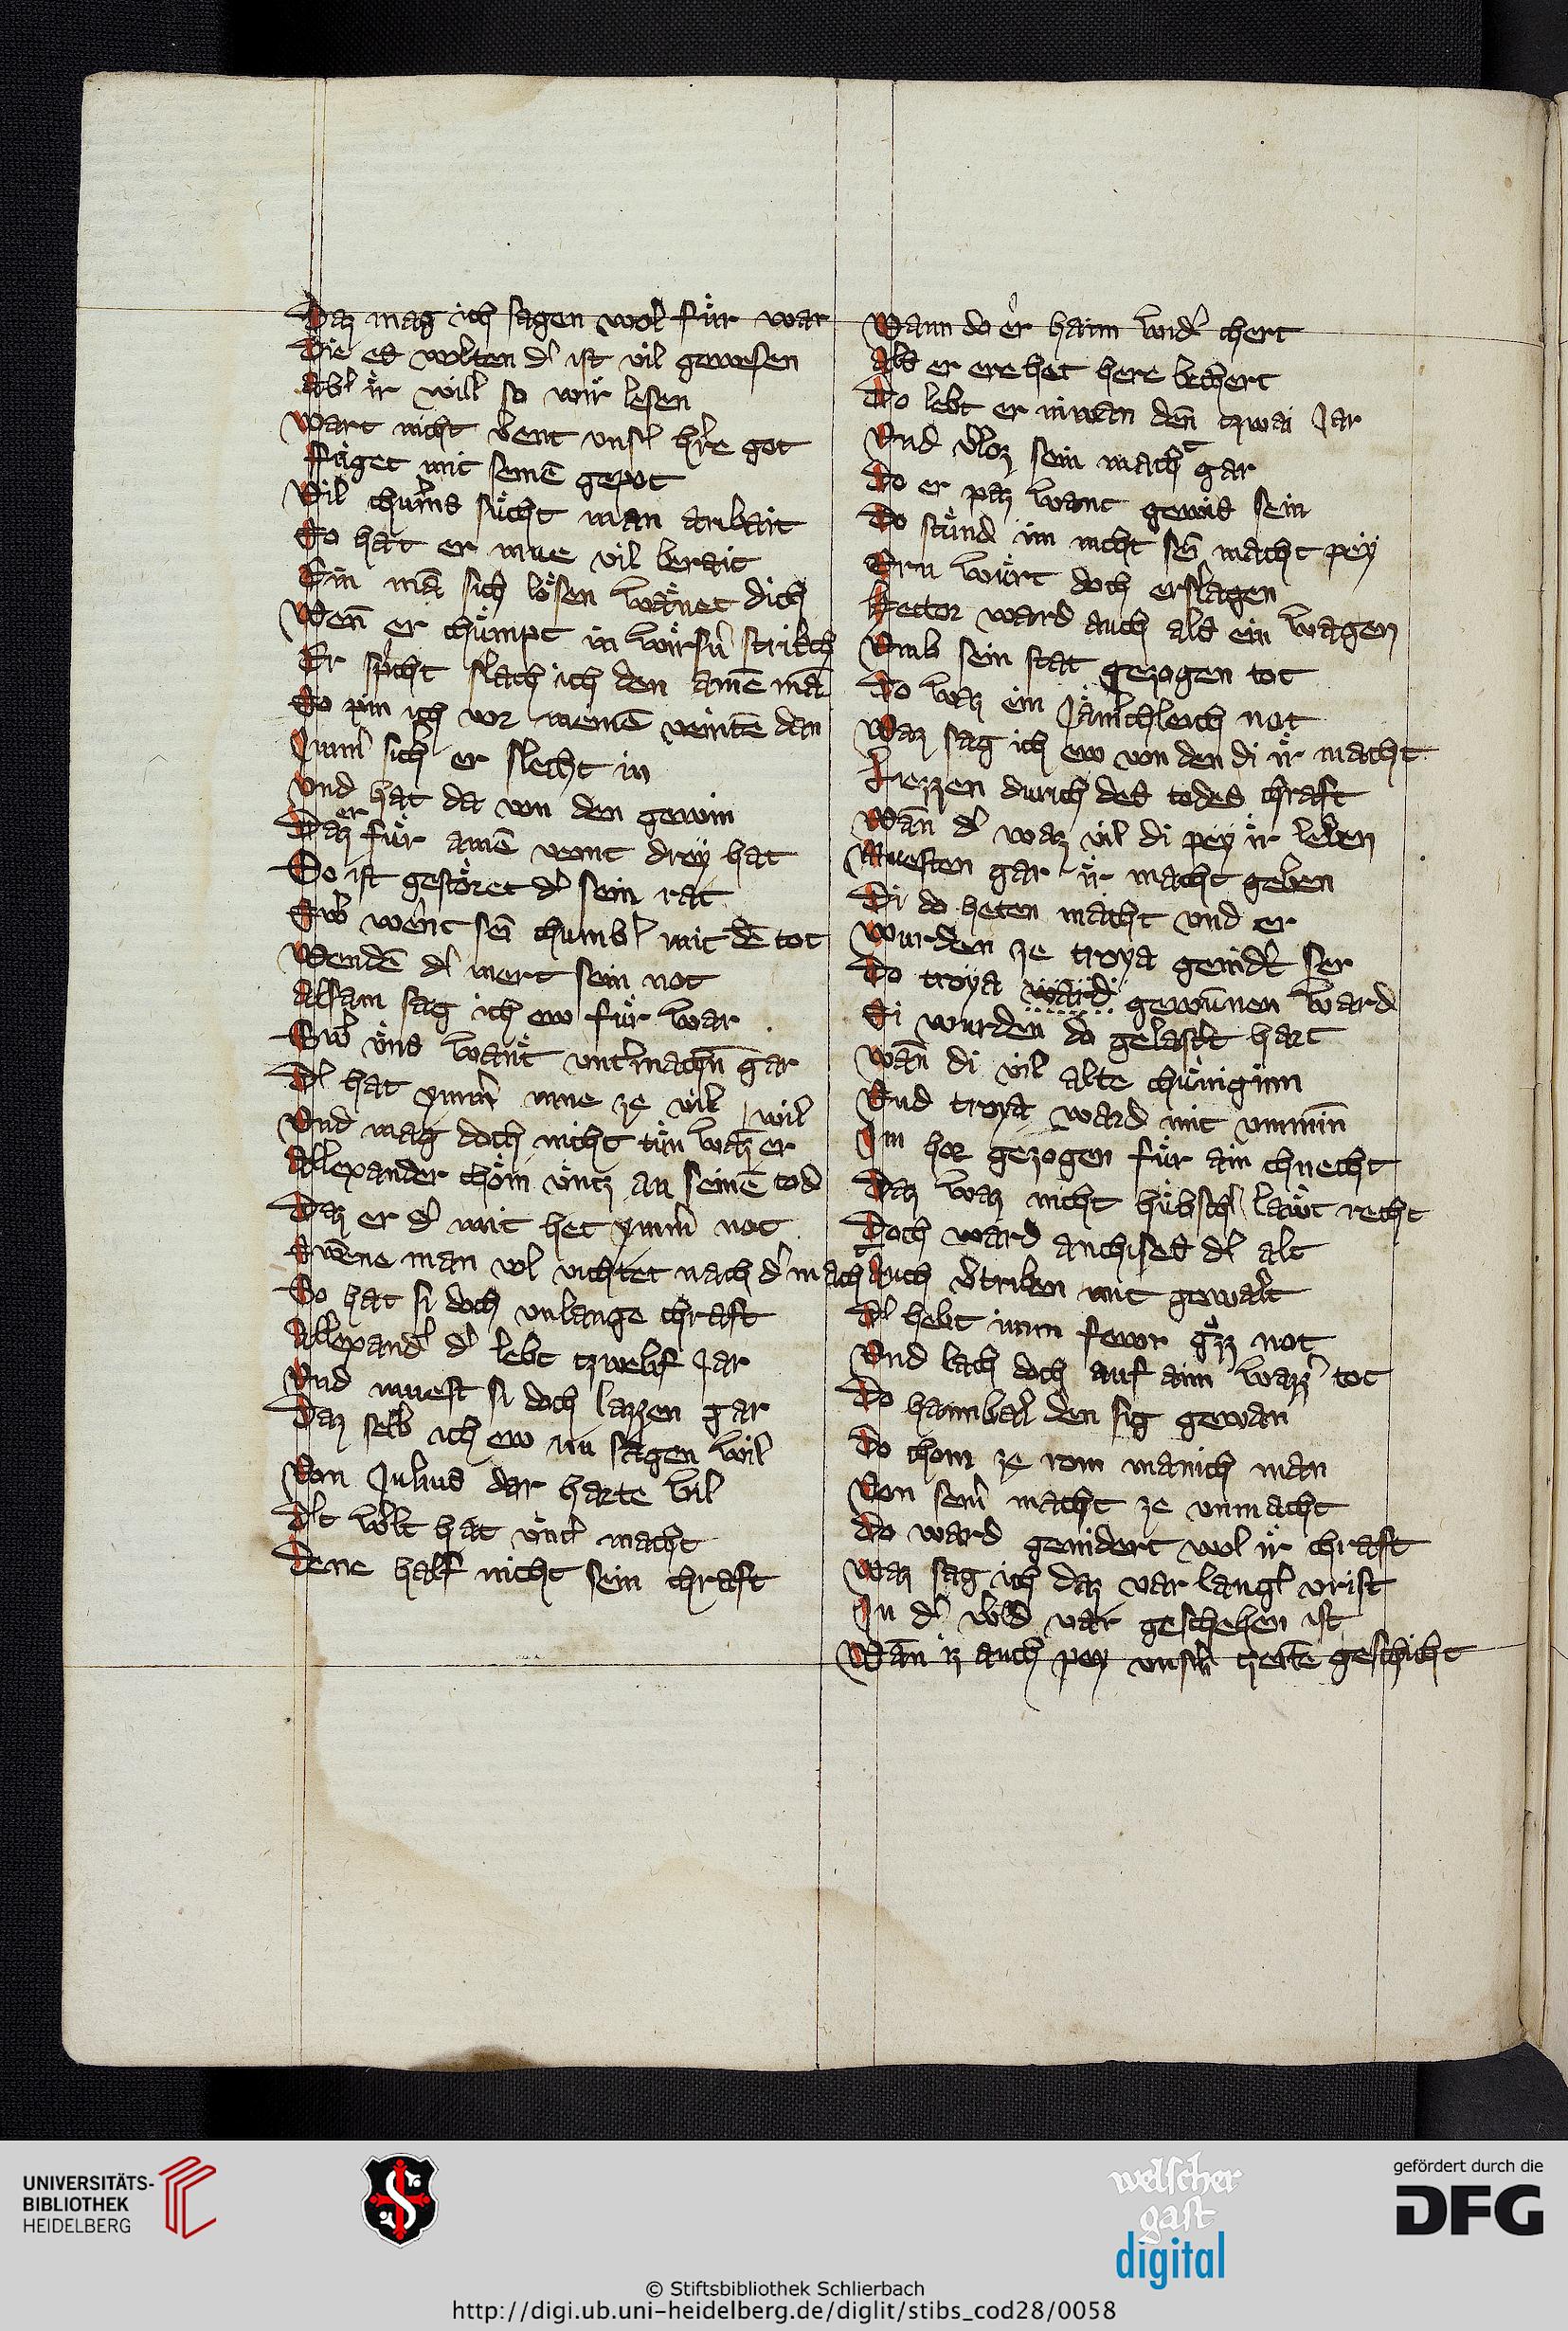 Daz mag ich sagen wol für war
Die es wolten d' ist vil gewesen
Ab' ir will so wir lesen
Wart nicht vent uns' h're got
Füget mit seinē gepot
Vil chums sücht man aribait
So hat er mue vil berait
Ein mā sich lösen wänet dich
Wen̄ er chümpt in strikch
Er sp'icht slach ich den ainē mā
So pin ich vor meinē veintē dan
sich er slecht in
Vnd hat da von den gewin
Daz er für ainē veint drey hat
So ist gestöret d' sein rat
Sw' went sein chumb' mit dē tot
Wendē d' mert sein not
Alsam sag ich ew für war
Sw' vns want vnt'machn̄ gar
D' hat ymm' mue ze vil
Vnd mag doch nicht tün waz er wil
Allexander chöm vntz an seinē tod
Daz er d' mit het ymm' not
Swēne man vichtet nach d' macht
So hat si doch vnlange chraft
Allexand' d' lebt tzwelf Jar
Vnd muest si doch lazzen gar
Daz selb ich ew nu sagen wil
Von Julius dar harte vil
D't w'lt hat vnt' macht
Dene half nicht sein chraft
Wann do er haim wid' chert
Als er ere het here bechert
Do lebt er niwan den̄ tzwai Jar
Vnd v'loz sein macht gar
Do er paz want gewis sein
Do stünd im nicht sein macht pey
Ern würt doch erslagen
Hector ward auch als ein wagen
Vmb sein stat gezogen tot
Do waz ein Jäm'chleich not
Waz sag ich ew von den di ir macht
Liezzen durich des todes chraft
Wan̄ d' waz vil di pey ir leben
Muesten gar ir macht geben
Di do heten macht vnd er
Wurden ze troya genid't ser
Do troya ward gewunnen ward
Si wurden do gelast't hart
Wan̄ di vil alte chüniginn
Vnd troya ward mit vnminn
Im hor gezogen für ain chnecht
Daz waz nicht hübsch' laüt recht
Doch ward anchises d' alt
Auch v'triben mit gewalt
D' hebt imm fewr gözz not
Vnd lach doch auf aim wazz' tot
Do hannibal den sig gewan
Do chom ze rom manich man
Von sein' macht ze vnmacht
Do ward genidert wol ir chraft
Waz sag ich daz var lang' vrist
In d' w'ld var geschehen ist
Wan̄ iz auch pey vns'n tzeitē geschicht
UNIVERSITÄTS-
BIBLIOTHEK
HEIDELBERG
welscher
gast
digital
gefördert durch die
DFG
© Stiftsbibliothek Schlierbach
http://digi.ub.uni-heidelberg.de/diglit/stibs_cod28/0058